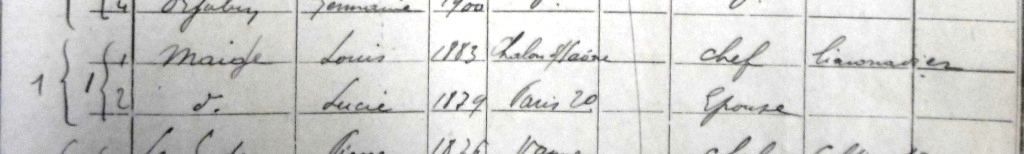 4 Germaine 1900
1 1 1 Maide Louis 1883 Chalon s/Saône chef limonadier
2 d. Lucie 1879 Paris 20 Epouse
Pierre 1876